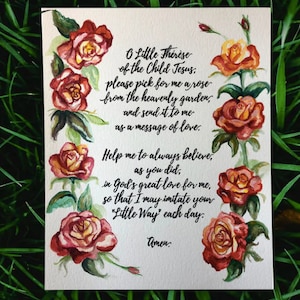 O Little Thérèse
of the Child Jesus,
please pick for me a rose
from the heavenly garden,
and send it to me
as a message of love.
Help me to always believe,
as you did,
in God's great love for me,
so that I may imitate your
"Little Way" each day.
Amen.